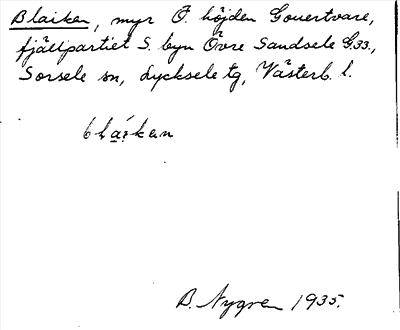 Blaiken, myr Ö. höjden Gouertvare,
fjällpartiet S. byn Övre Sandsele G33.,
Sorsele sn, Lycksele tg, Västerb. l.
blái̯kɛn
B. Nygren 1935.